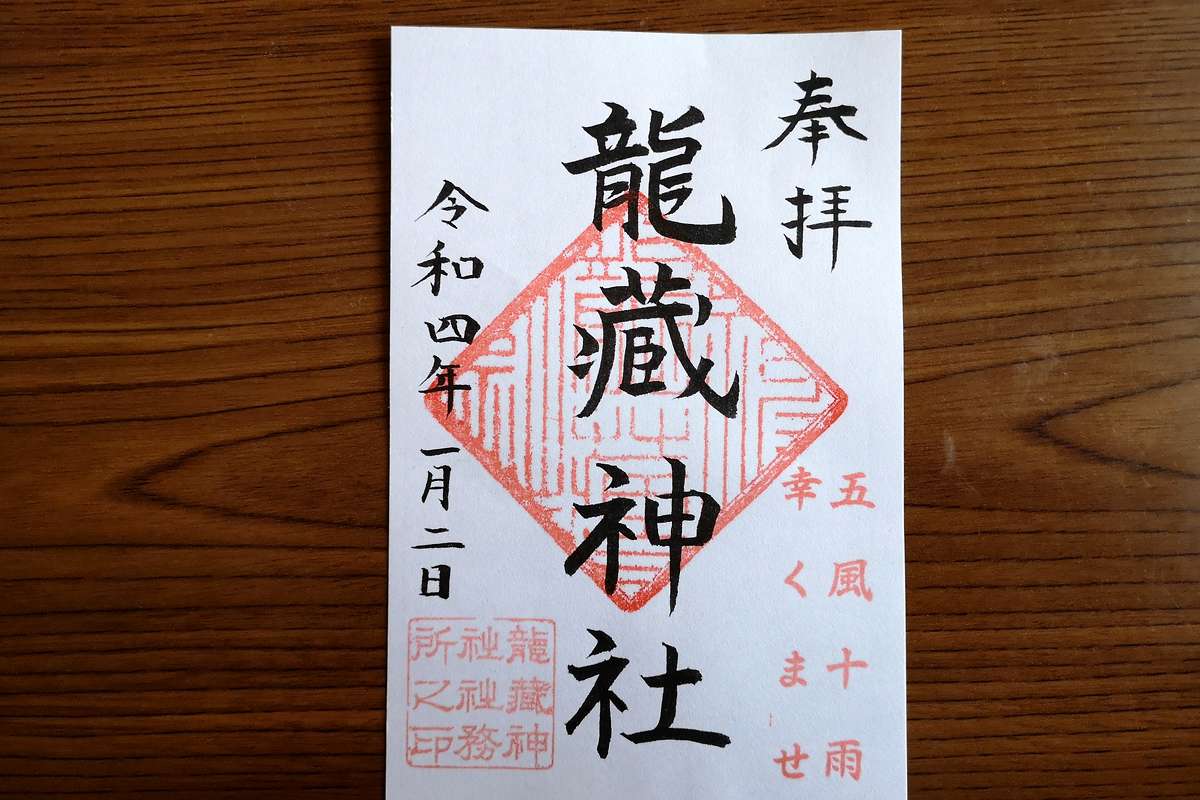 奉拝
五風十雨
幸くませ
龍蔵神社
令和四年一月二日
龍蔵神
社社務
所之印